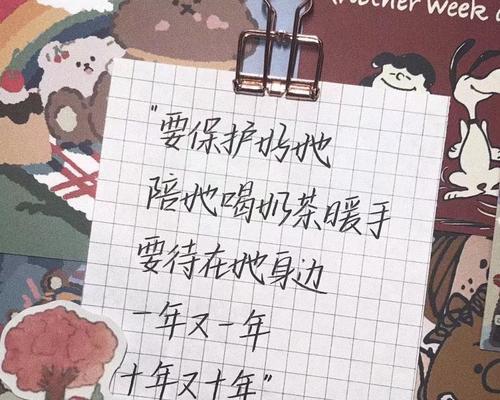 Another Week
“要保护好她
陪她喝奶茶暖手
要待在她身边
一年又一年
十年又十年”